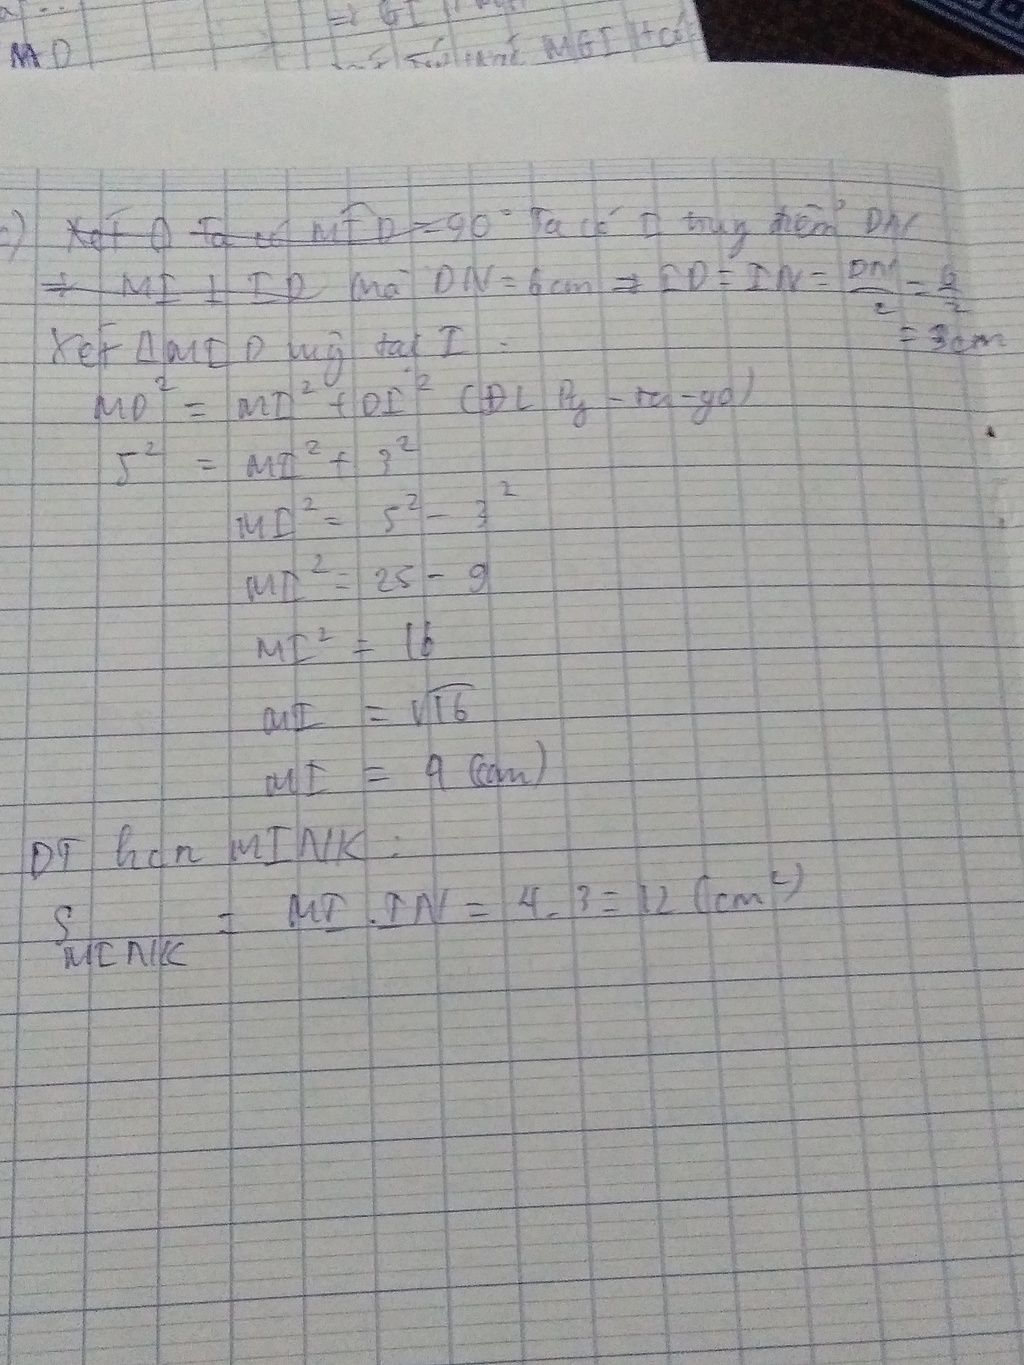 MD
=> GI
MGI
c) Xét Δ Ta có MID = 90° Ta có I trung điểm DN
=> MI ⊥ ID mà DN = 6cm => ID = IN = DN/2 = 6/2
= 3cm
Xét Δ MID vuông tại I :
MD² = MI² + DI² (ĐL Py-ta-go)
5² = MI² + 3²
MI² = 5² - 3²
MI² = 25 - 9
MI² = 16
MI = √16
MI = 4 (cm)
DT hcn MINK :
S MINK = MI . IN = 4 . 3 = 12 (cm²)